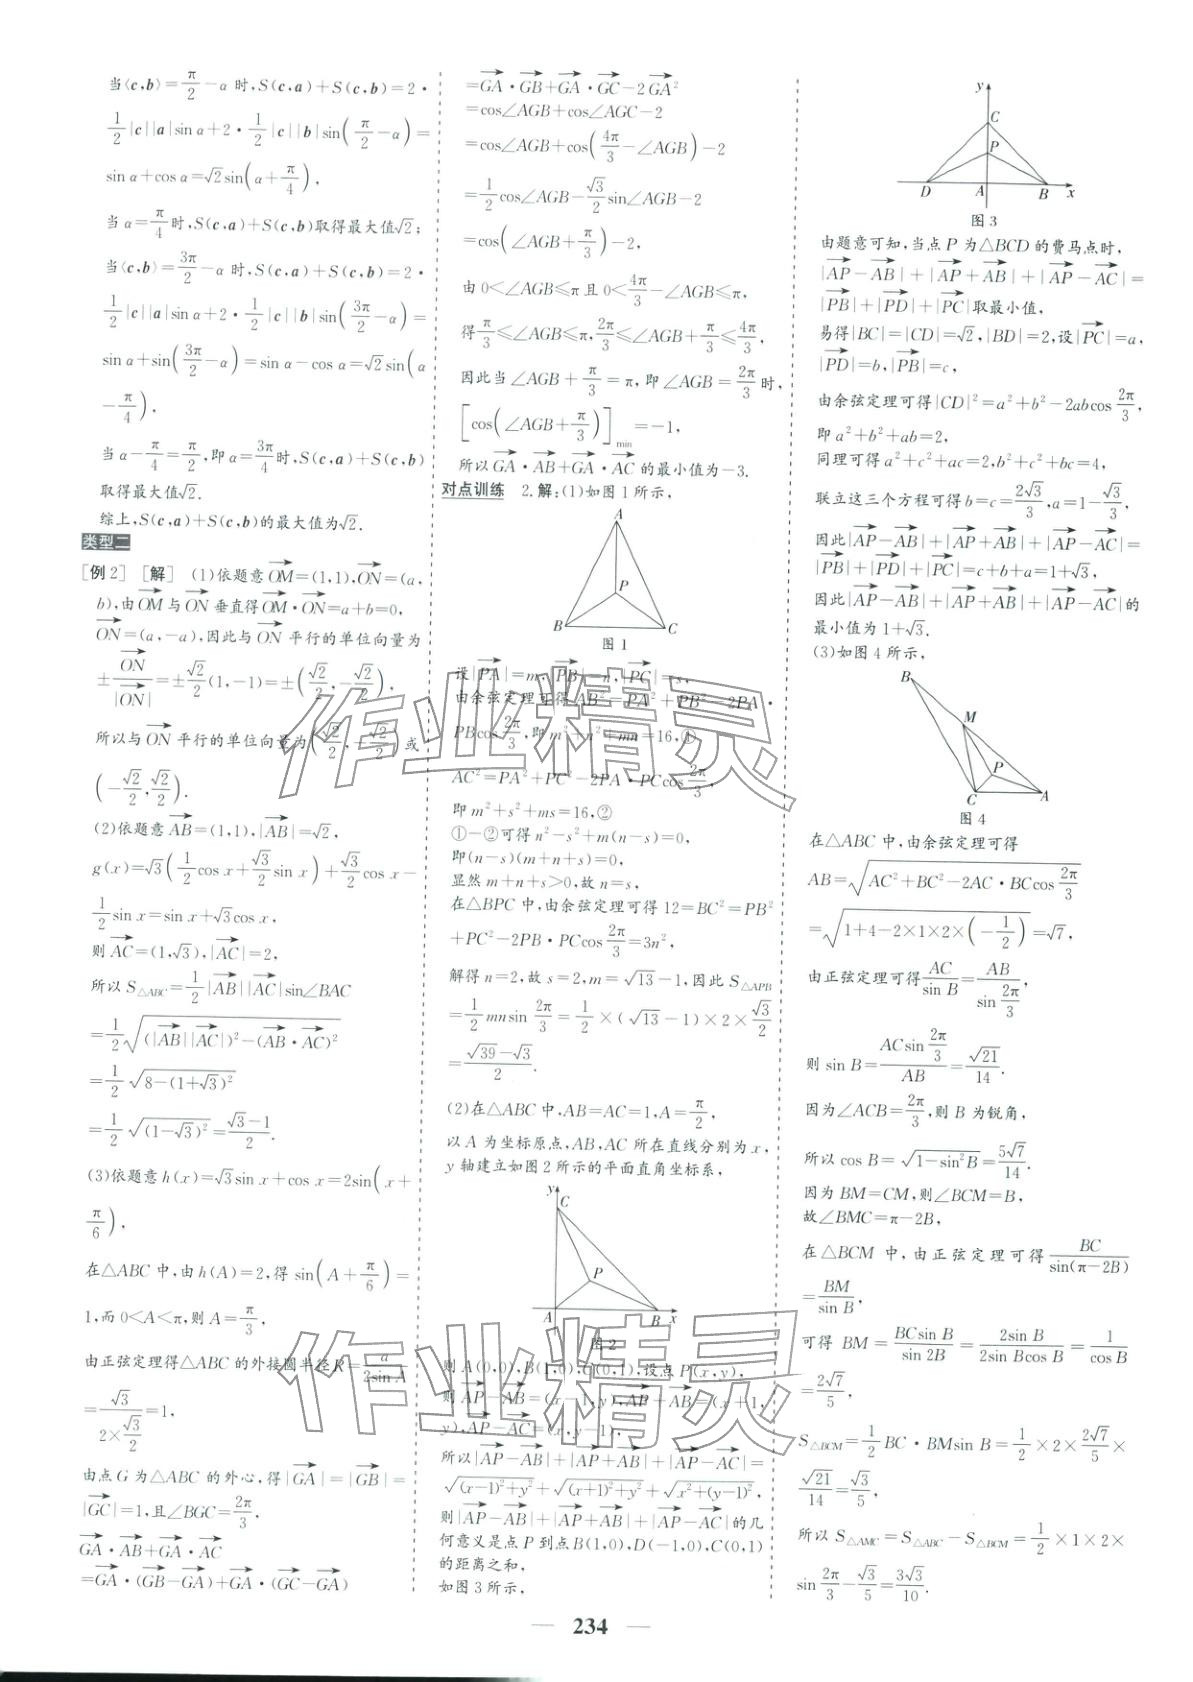 当⟨c,b⟩=π/2-α 时,S(c,a)+S(c,b)=2·
1/2|c||a|sin α+2·1/2|c||b|sin(π/2-α)=
sin α+cos α=√2sin(α+π/4),
当 α=π/4时,S(c,a)+S(c,b)取得最大值√2;
当⟨c,b⟩=3π/2-α 时,S(c,a)+S(c,b)=2·
1/2|c||a|sin α+2·1/2|c||b|sin(3π/2-α)=
sin α+sin(3π/2-α)=sin α-cos α=√2sin(α
-π/4),
当 α-π/4=π/2,即 α=3π/4时,S(c,a)+S(c,b)
取得最大值√2.
综上,S(c,a)+S(c,b)的最大值为√2.
类型二
[例2] [解] (1)依题意 OM→=(1,1),ON→=(a,
b),由OM→与ON→垂直得OM→·ON→=a+b=0,
ON→=(a,-a),因此与ON→平行的单位向量为
±ON→/|ON→|=±√2/2(1,-1)=±(√2/2,-√2/2),
所以与ON→平行的单位向量为(√2/2,-√2/2)或
(-√2/2,√2/2).
(2)依题意AB→=(1,1),|AB→|=√2,
g(x)=√3(1/2cos x+√3/2sin x)+√3/2cos x-
1/2sin x=sin x+√3cos x,
则AC→=(1,√3),|AC→|=2,
所以 S△ABC=1/2|AB→||AC→|sin∠BAC
=1/2√((|AB→||AC→|)²-(AB→·AC→)²)
=1/2√(8-(1+√3)²)
=1/2√((1-√3)²)=(√3-1)/2.
(3)依题意 h(x)=√3sin x+cos x=2sin(x+
π/6),
在△ABC 中,由 h(A)=2,得 sin(A+π/6)=
1,而 0<A<π,则 A=π/3,
由正弦定理得△ABC 的外接圆半径 R=a/2sin A
=√3/(2×√3/2)=1,
由点 G 为△ABC 的外心,得|GA→|=|GB→|=
|GC→|=1,且∠BGC=2π/3,
GA→·AB→+GA→·AC→
=GA→·(GB→-GA→)+GA→·(GC→-GA→)
=GA→·GB→+GA→·GC→-2GA→²
=cos∠AGB+cos∠AGC-2
=cos∠AGB+cos(4π/3-∠AGB)-2
=1/2cos∠AGB-√3/2sin∠AGB-2
=cos(∠AGB+π/3)-2,
由 0<∠AGB≤π 且 0<4π/3-∠AGB≤π,
得π/3≤∠AGB≤π,2π/3≤∠AGB+π/3≤4π/3,
因此当∠AGB+π/3=π,即∠AGB=2π/3时,
[cos(∠AGB+π/3)]min=-1,
所以GA→·AB→+GA→·AC→的最小值为-3.
对点训练 2.解:(1)如图1所示,
A
P
B
C
图1
设|PA→|=m,|PB→|=n,|PC→|=s,
由余弦定理可得 AB²=PA²+PB²-2PA·
PBcos2π/3,即 m²+n²+mn=16,①
AC²=PA²+PC²-2PA·PCcos2π/3,
即 m²+s²+ms=16,②
①-②可得 n²-s²+m(n-s)=0,
即(n-s)(m+n+s)=0,
显然 m+n+s>0,故 n=s,
在△BPC 中,由余弦定理可得 12=BC²=PB²
+PC²-2PB·PCcos2π/3=3n²,
解得 n=2,故 s=2,m=√13-1,因此 S△APB
=1/2mnsin 2π/3=1/2×(√13-1)×2×√3/2
=(√39-√3)/2.
(2)在△ABC 中,AB=AC=1,A=π/2,
以 A 为坐标原点,AB,AC 所在直线分别为 x,
y 轴建立如图2所示的平面直角坐标系,
y
C
P
A
B
x
图2
则 A(0,0),B(1,0),C(0,1),设点 P(x,y),
则AP→-AB→=(x-1,y),AP→+AB→=(x+1,
y),AP→-AC→=(x,y-1),
所以|AP→-AB→|+|AP→+AB→|+|AP→-AC→|=
√((x-1)²+y²)+√((x+1)²+y²)+√(x²+(y-1)²),
则|AP→-AB→|+|AP→+AB→|+|AP→-AC→|的几
何意义是点 P 到点 B(1,0),D(-1,0),C(0,1)
的距离之和,
如图3所示,
y
C
P
D
A
B
x
图3
由题意可知,当点 P 为△BCD 的费马点时,
|AP→-AB→|+|AP→+AB→|+|AP→-AC→|=
|PB→|+|PD→|+|PC→|取最小值,
易得|BC|=|CD|=√2,|BD|=2,设|PC→|=a,
|PD→|=b,|PB→|=c,
由余弦定理可得|CD|²=a²+b²-2abcos2π/3,
即 a²+b²+ab=2,
同理可得 a²+c²+ac=2,b²+c²+bc=4,
联立这三个方程可得 b=c=2√3/3,a=1-√3/3,
因此|AP→-AB→|+|AP→+AB→|+|AP→-AC→|=
|PB→|+|PD→|+|PC→|=c+b+a=1+√3,
因此|AP→-AB→|+|AP→+AB→|+|AP→-AC→|的
最小值为 1+√3.
(3)如图4所示,
B
M
P
C
A
图4
在△ABC 中,由余弦定理可得
AB=√(AC²+BC²-2AC·BCcos2π/3)
=√(1+4-2×1×2×(-1/2))=√7,
由正弦定理可得AC/sin B=AB/sin2π/3,
则 sin B=ACsin2π/3/AB=√21/14.
因为∠ACB=2π/3,则 B 为锐角,
所以 cos B=√(1-sin²B)=5√7/14.
因为 BM=CM,则∠BCM=B,
故∠BMC=π-2B,
在△BCM 中,由正弦定理可得BC/sin(π-2B)
=BM/sin B,
可得 BM=BCsin B/sin 2B=2sin B/2sin Bcos B=1/cos B
=2√7/5,
S△BCM=1/2BC·BMsin B=1/2×2×2√7/5×
√21/14=√3/5,
所以 S△AMC=S△ABC-S△BCM=1/2×1×2×
sin 2π/3-√3/5=3√3/10.
作业精灵
作业精灵
— 234 —